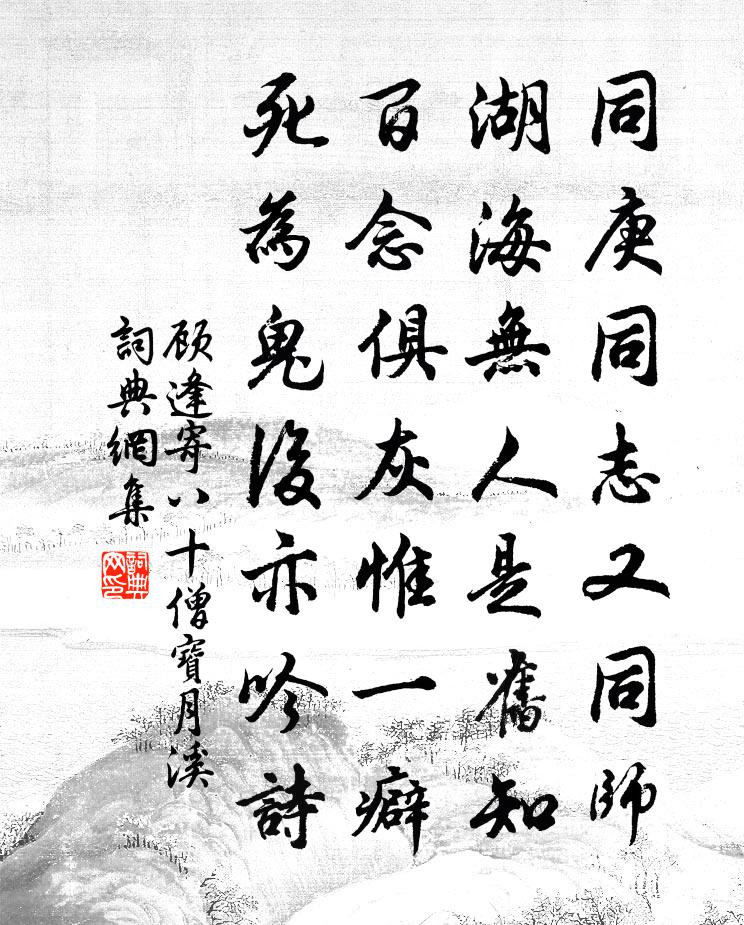 同庚同志又同師
湖海無人是舊知
百念俱灰惟一癖
死為鬼後亦吟詩
顾逢寄八十僧寶月溪
詞典網集
詞典網印